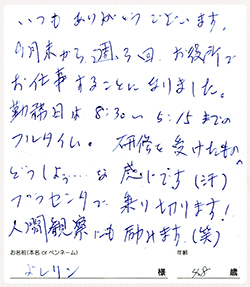 いつもありがとうございます。
9月末から、週3回、お役所で
お仕事することになりました。
勤務日は8:30〜5:15までの
フルタイム。研修を受けたものの
どうしよう…な感じです(汗)
プラセンタで乗り切ります!
人間観察にも励みます。(笑)
お名前(本名 or ペンネーム) 年齢
よしリン 様 48 歳